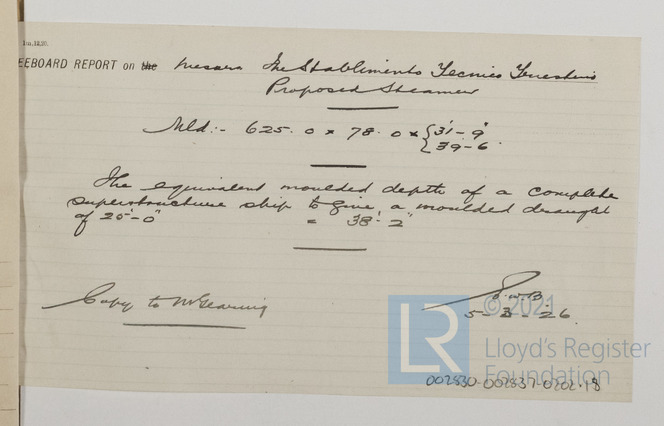 1m.12.20.
EEBOARD REPORT on the Messrs The Stablimento Tecnico Triestino
Proposed Steamer
Mld:- 625.0 x 78.0 x { 31'-9"
39-6
The equivalent moulded depth of a complete
superstructure ship to give a moulded draught
of 25'-0" = 38'-2"
Copy to Mr Gearing
5-3-26
LR
© 2021
Lloyd's Register
Foundation
002830-002837-0202-18